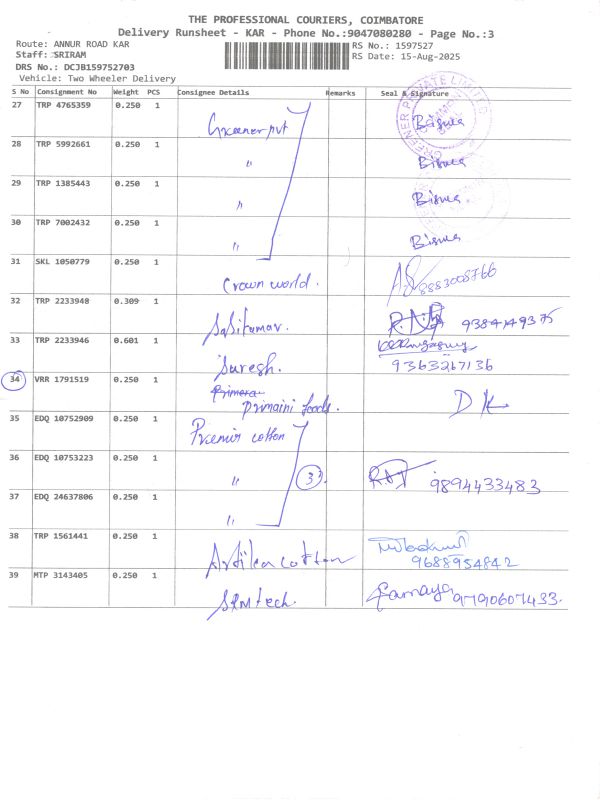 THE PROFESSIONAL COURIERS, COIMBATORE
Delivery Runsheet - KAR - Phone No.:9047080280 - Page No.:3
Route: ANNUR ROAD KAR
RS No.: 1597527
Staff: SRIRAM
RS Date: 15-Aug-2025
DRS No.: DCJB159752703
Vehicle: Two Wheeler Delivery
S No Consignment No Weight PCS Consignee Details Remarks Seal & Signature
27 TRP 4765359 0.250 1
Greener pvt Biswa
28 TRP 5992661 0.250 1
" Biswa
29 TRP 1385443 0.250 1
" Biswa
30 TRP 7002432 0.250 1
" Biswa
31 SKL 1050779 0.250 1
Crown world. 8883008766
32 TRP 2233948 0.309 1
Sasikumar.
33 TRP 2233946 0.601 1
Suresh. 9363267136
34 VRR 1791519 0.250 1
Primaini foods. DK
35 EDQ 10752909 0.250 1
Premir cotton
36 EDQ 10753223 0.250 1
" 3 9894433483
37 EDQ 24637806 0.250 1
"
38 TRP 1561441 0.250 1
Ardika cotton 9688954842
39 MTP 3143405 0.250 1
SRM tech. Ramaya 9790607433.
GREENER PRIVATE LIMITED